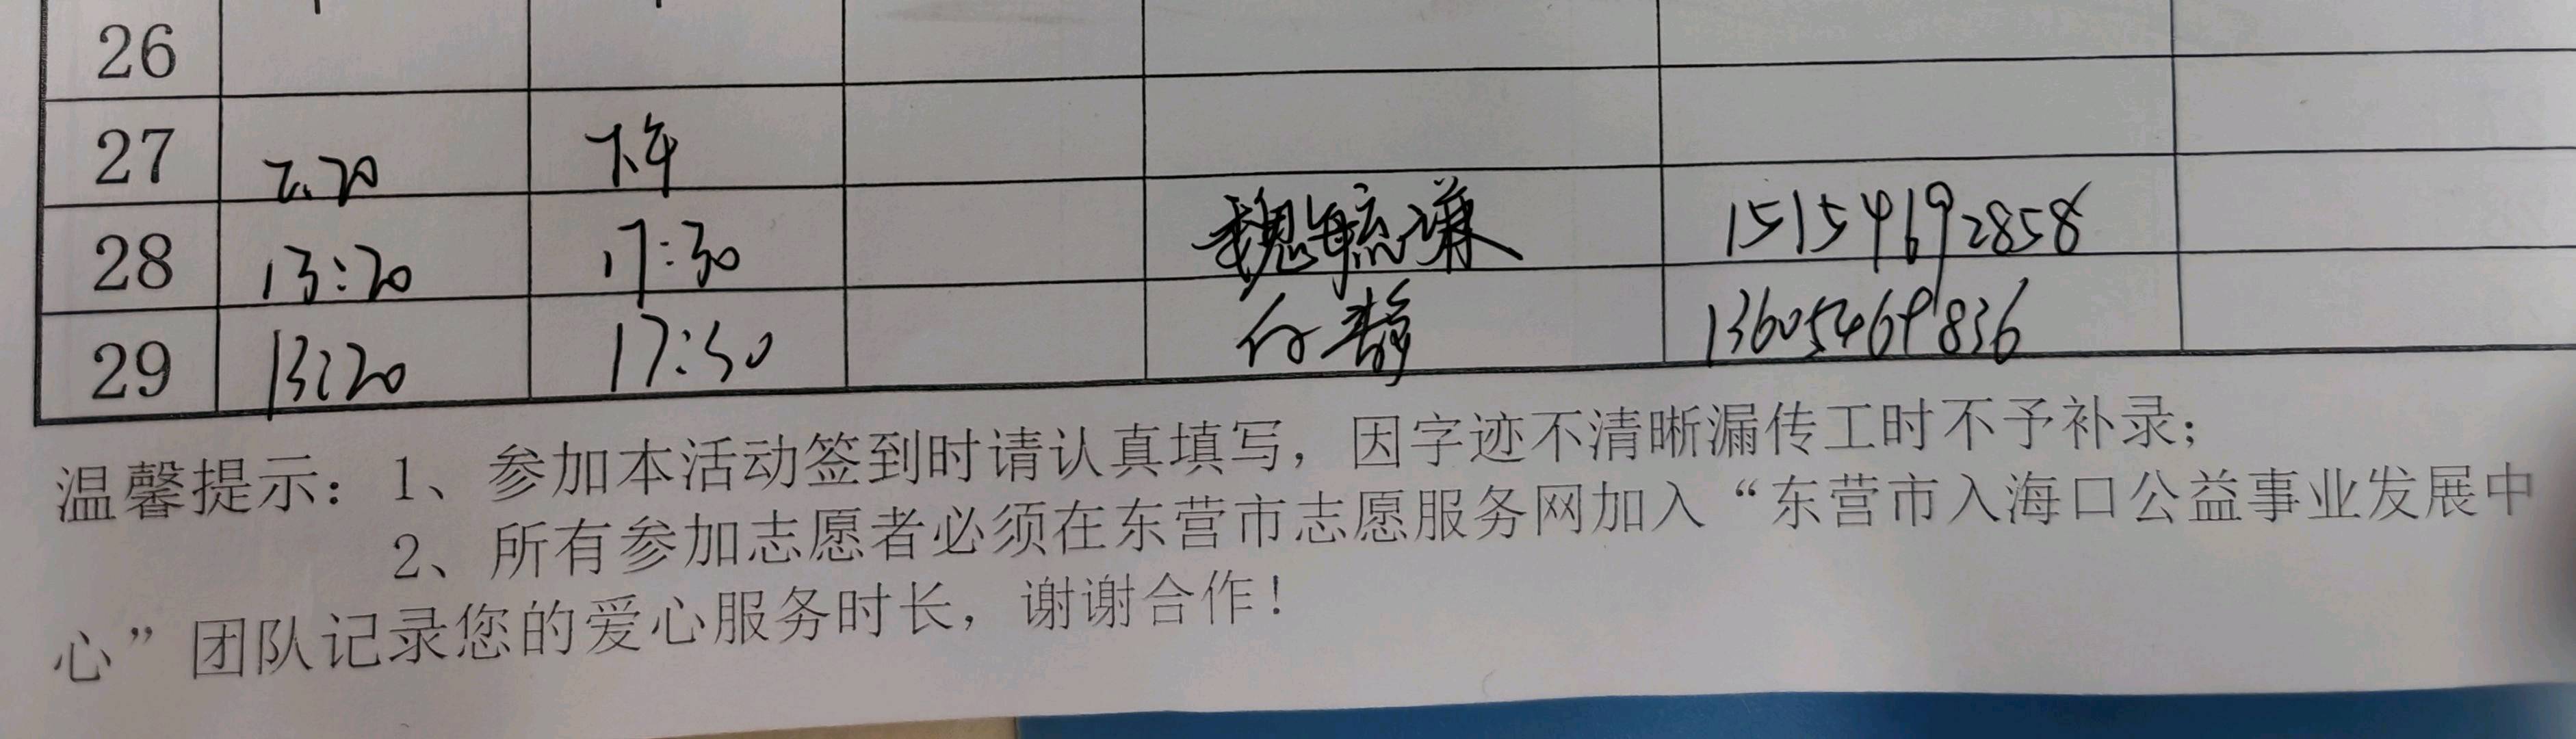 26
27 2.20 下午
28 13:20 17:30 魏毓谦 15154692858
29 13:20 17:30 付静 13605469836
温馨提示：1、参加本活动签到时请认真填写，因字迹不清晰漏传工时不予补录；
2、所有参加志愿者必须在东营市志愿服务网加入“东营市入海口公益事业发展中
心”团队记录您的爱心服务时长，谢谢合作！